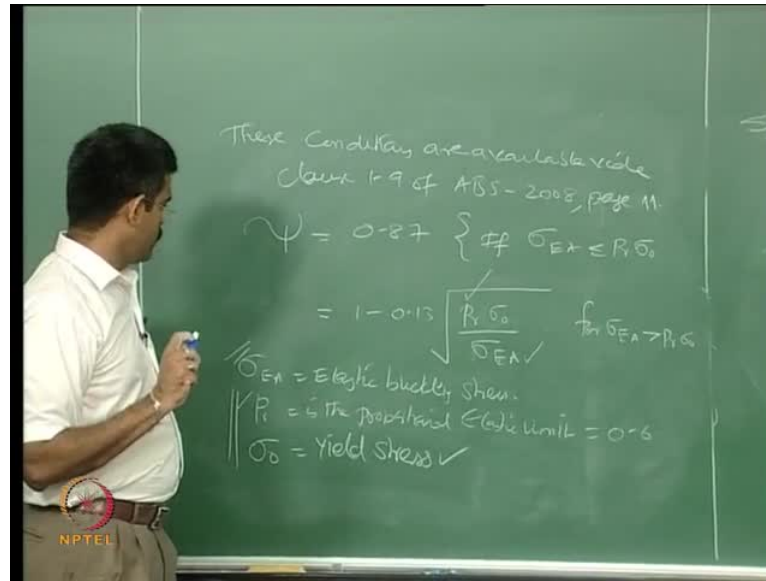 These conditions are available vide
clause 1.9 of ABS-2008, page 11.
ψ = 0.87 { If σ_EA ≤ Pr σ0
= 1 - 0.13 √(Pr σ0 / σ_EA) for σ_EA > Pr σ0
σ_EA = Elastic buckling stress.
Pr = is the proportional Elastic limit = 0.6
σ0 = Yield stress
NPTEL